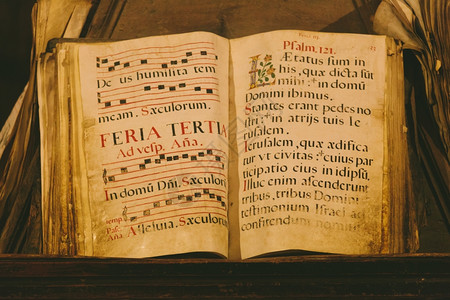 De us humilita tem
meam. Sæculorum.
FERIA TERTIA
Ad vesp. Aña.
In domū Dñi. Sæculorum
temp.
Pas.
Aña. Alleluia. Sæculorum
Psalm. 121.
Lætatus sum in
his, quæ dicta sūt
mihi: in domū
Domini ibimus.
Stantes erant pedes no
stri: in atrijs tuis Ie
rusalem.
Ierusalem, quæ ædifica
tur vt civitas: cuius par
ticipatio eius in idipsū,
Illuc enim ascenderunt
tribus, tribus Domini
testimonium Israel ad
confitendum nomini